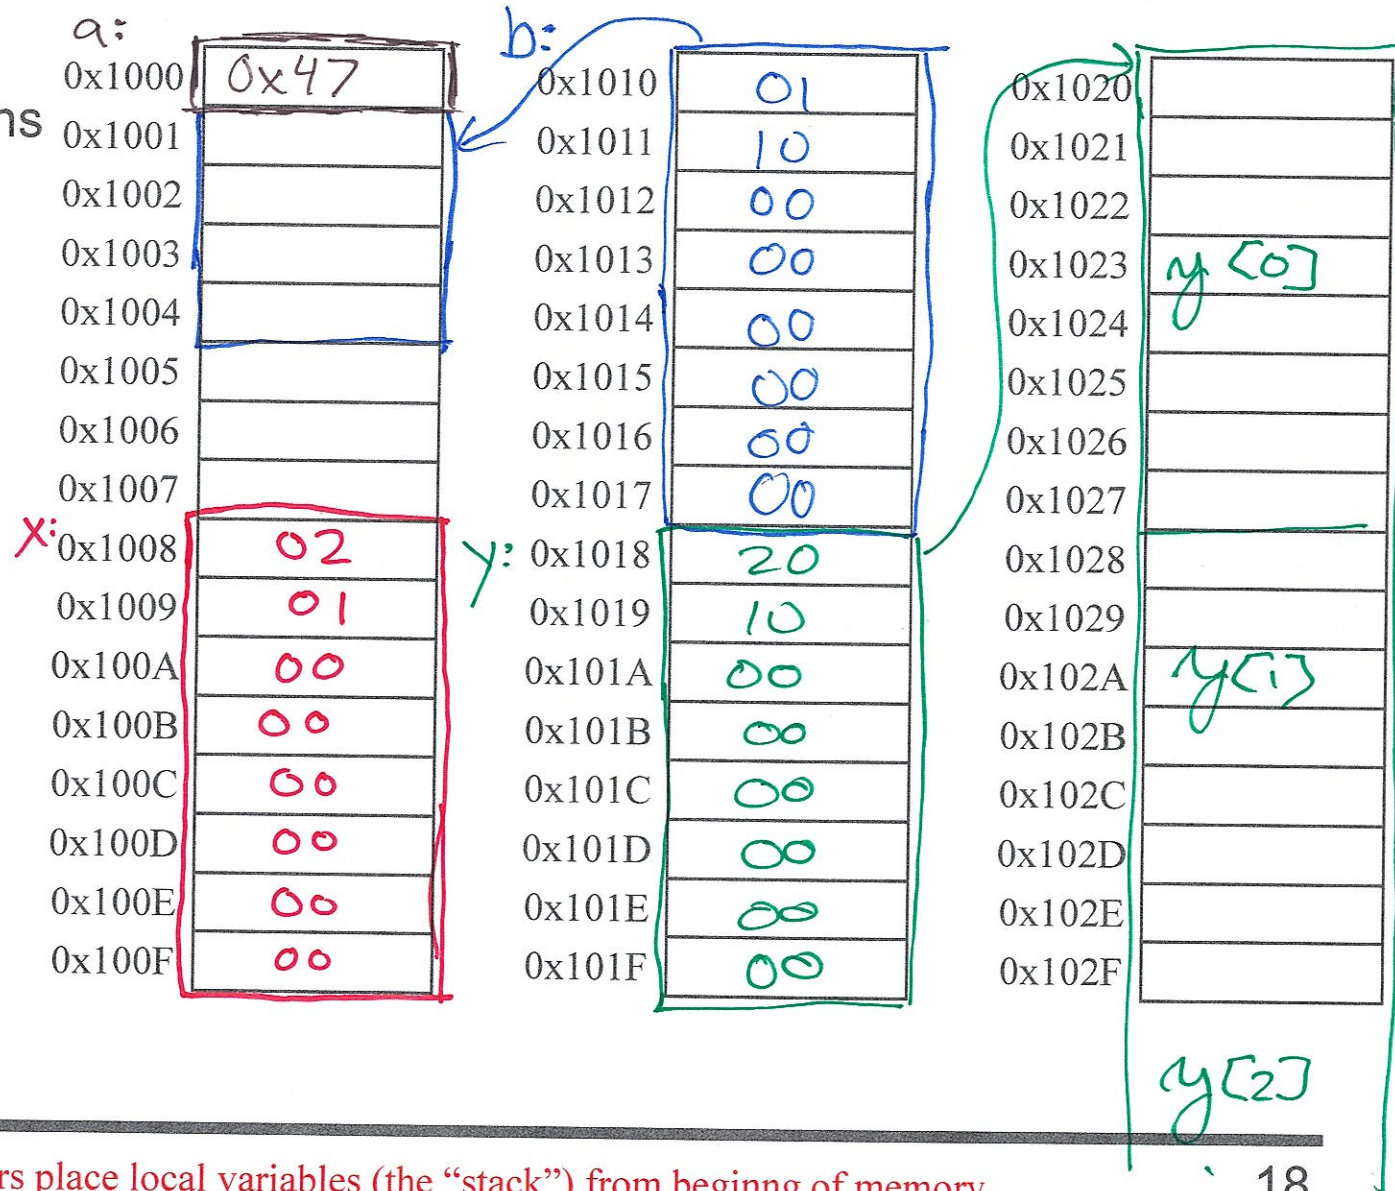 a:
0x1000 0x47
ns
0x1001
0x1002
0x1003
0x1004
0x1005
0x1006
0x1007
x:
0x1008 02
0x1009 01
0x100A 00
0x100B 00
0x100C 00
0x100D 00
0x100E 00
0x100F 00
b:
0x1010 01
0x1011 10
0x1012 00
0x1013 00
0x1014 00
0x1015 00
0x1016 00
0x1017 00
y:
0x1018 20
0x1019 10
0x101A 00
0x101B 00
0x101C 00
0x101D 00
0x101E 00
0x101F 00
0x1020
0x1021
0x1022
0x1023 y[0]
0x1024
0x1025
0x1026
0x1027
0x1028
0x1029
0x102A y[1]
0x102B
0x102C
0x102D
0x102E
0x102F
y[2]
rs place local variables (the “stack”) from beginng of memory
18